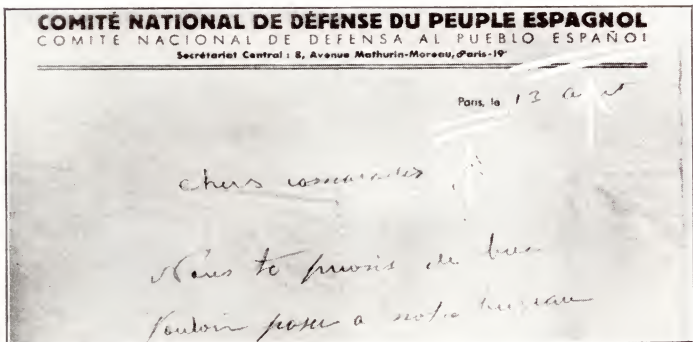 COMITÉ NATIONAL DE DÉFENSE DU PEUPLE ESPAGNOL
COMITÉ NACIONAL DE DEFENSA AL PUEBLO ESPAÑOL
Secrétariat Central : 8, Avenue Mathurin-Moreau, Paris-19e
Paris, le 13 août
chers camarades
Nous te prions de bien
Vouloir passer a notre bureau